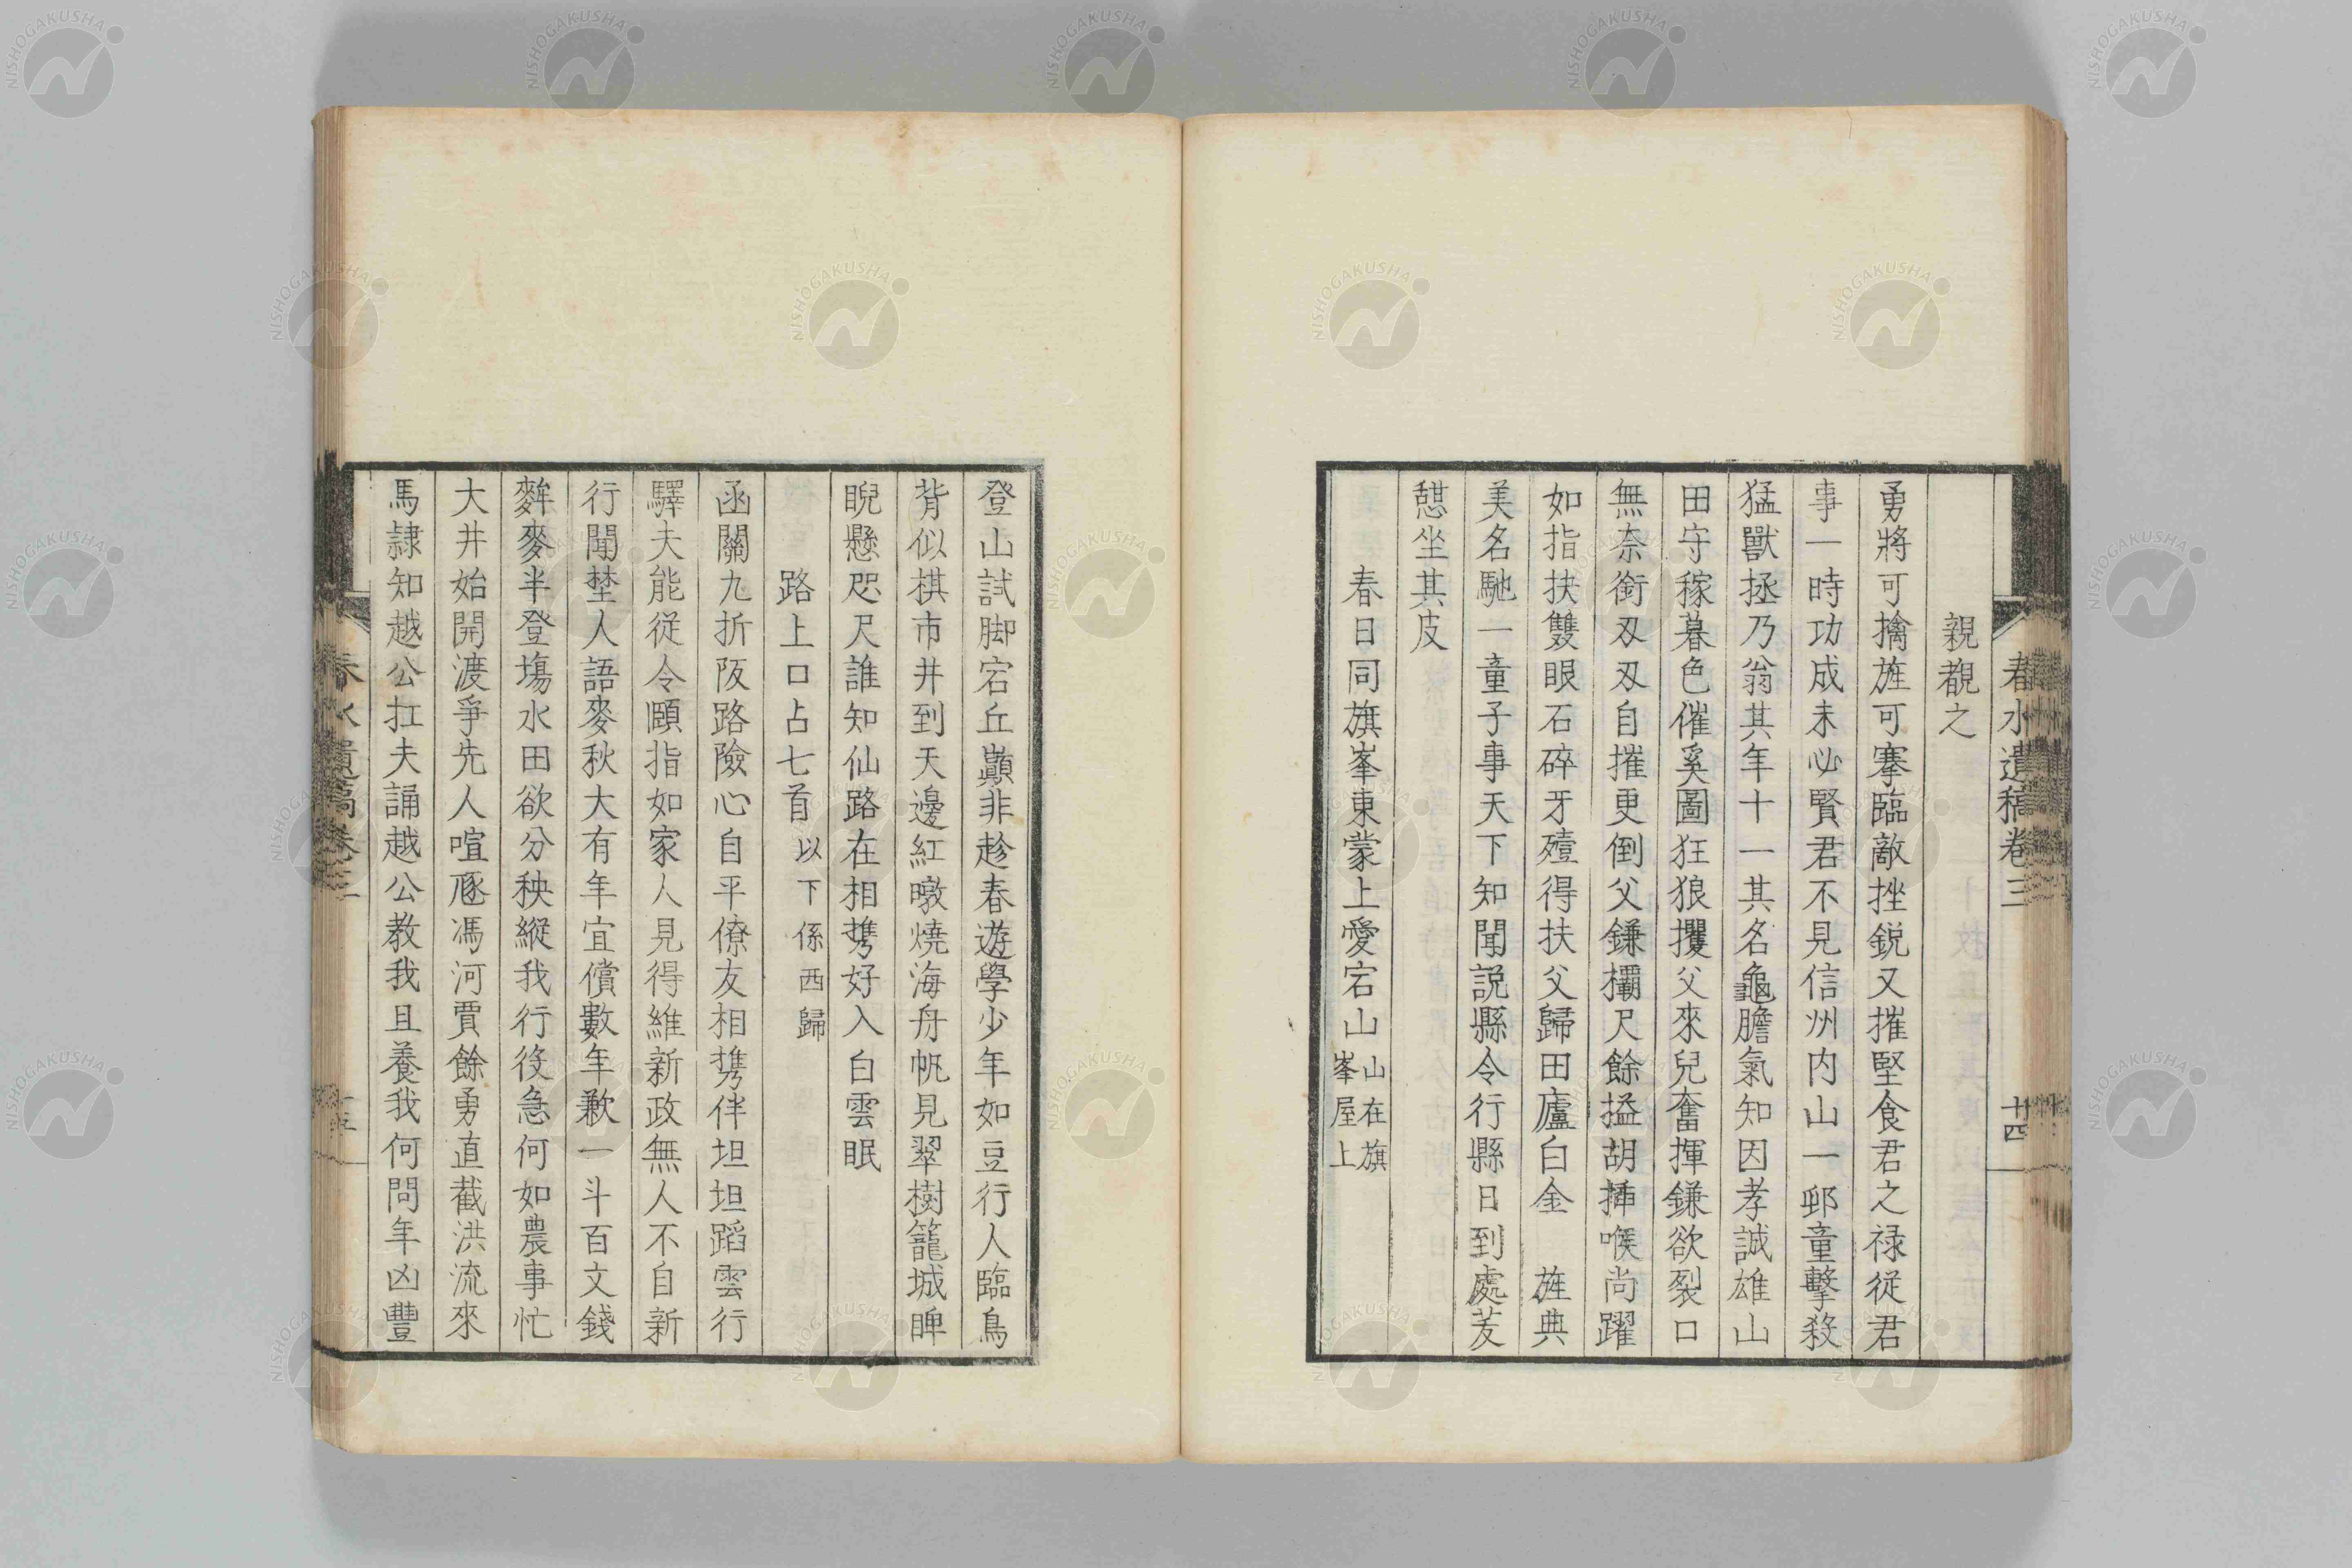 春水遺稿卷三
廿四
親覩之
勇將可擒旌可搴臨敵挫銳又摧堅食君之祿從君
事一時功成未必賢君不見信州内山一邨童擊殺
猛獸拯乃翁其年十一其名龜膽氣知因孝誠雄山
田守稼暮色催奚圖狂狼攫父來兒奮揮鎌欲裂口
無奈銜刄刄自摧更倒父鎌欛尺餘搤胡揷喉尚躍
如指抉雙眼石碎牙殪得扶父歸田廬白金 旌典
美名馳一童子事天下知聞説縣令行縣日到處茇
憇坐其皮
春日同旗峯東蒙上愛宕山 山在旗峯屋上
登山試脚宕丘巓非趁春遊學少年如豆行人臨鳥
背似棋市井到天邊紅暾燒海舟帆見翠樹籠城睥
睨懸咫尺誰知仙路在相携好入白雲眠
路上口占七首 以下係西歸
函關九折阪路險心自平僚友相携伴坦坦蹈雲行
驛夫能從令頤指如家人見得維新政無人不自新
行聞埜人語麥秋大有年宜償數年歉一斗百文錢
麰麥半登塲水田欲分秧縱我行役急何如農事忙
大井始開渡爭先人喧豗馮河賈餘勇直截洪流來
馬隷知越公扛夫誦越公教我且養我何問年凶豐
春水遺稿卷三